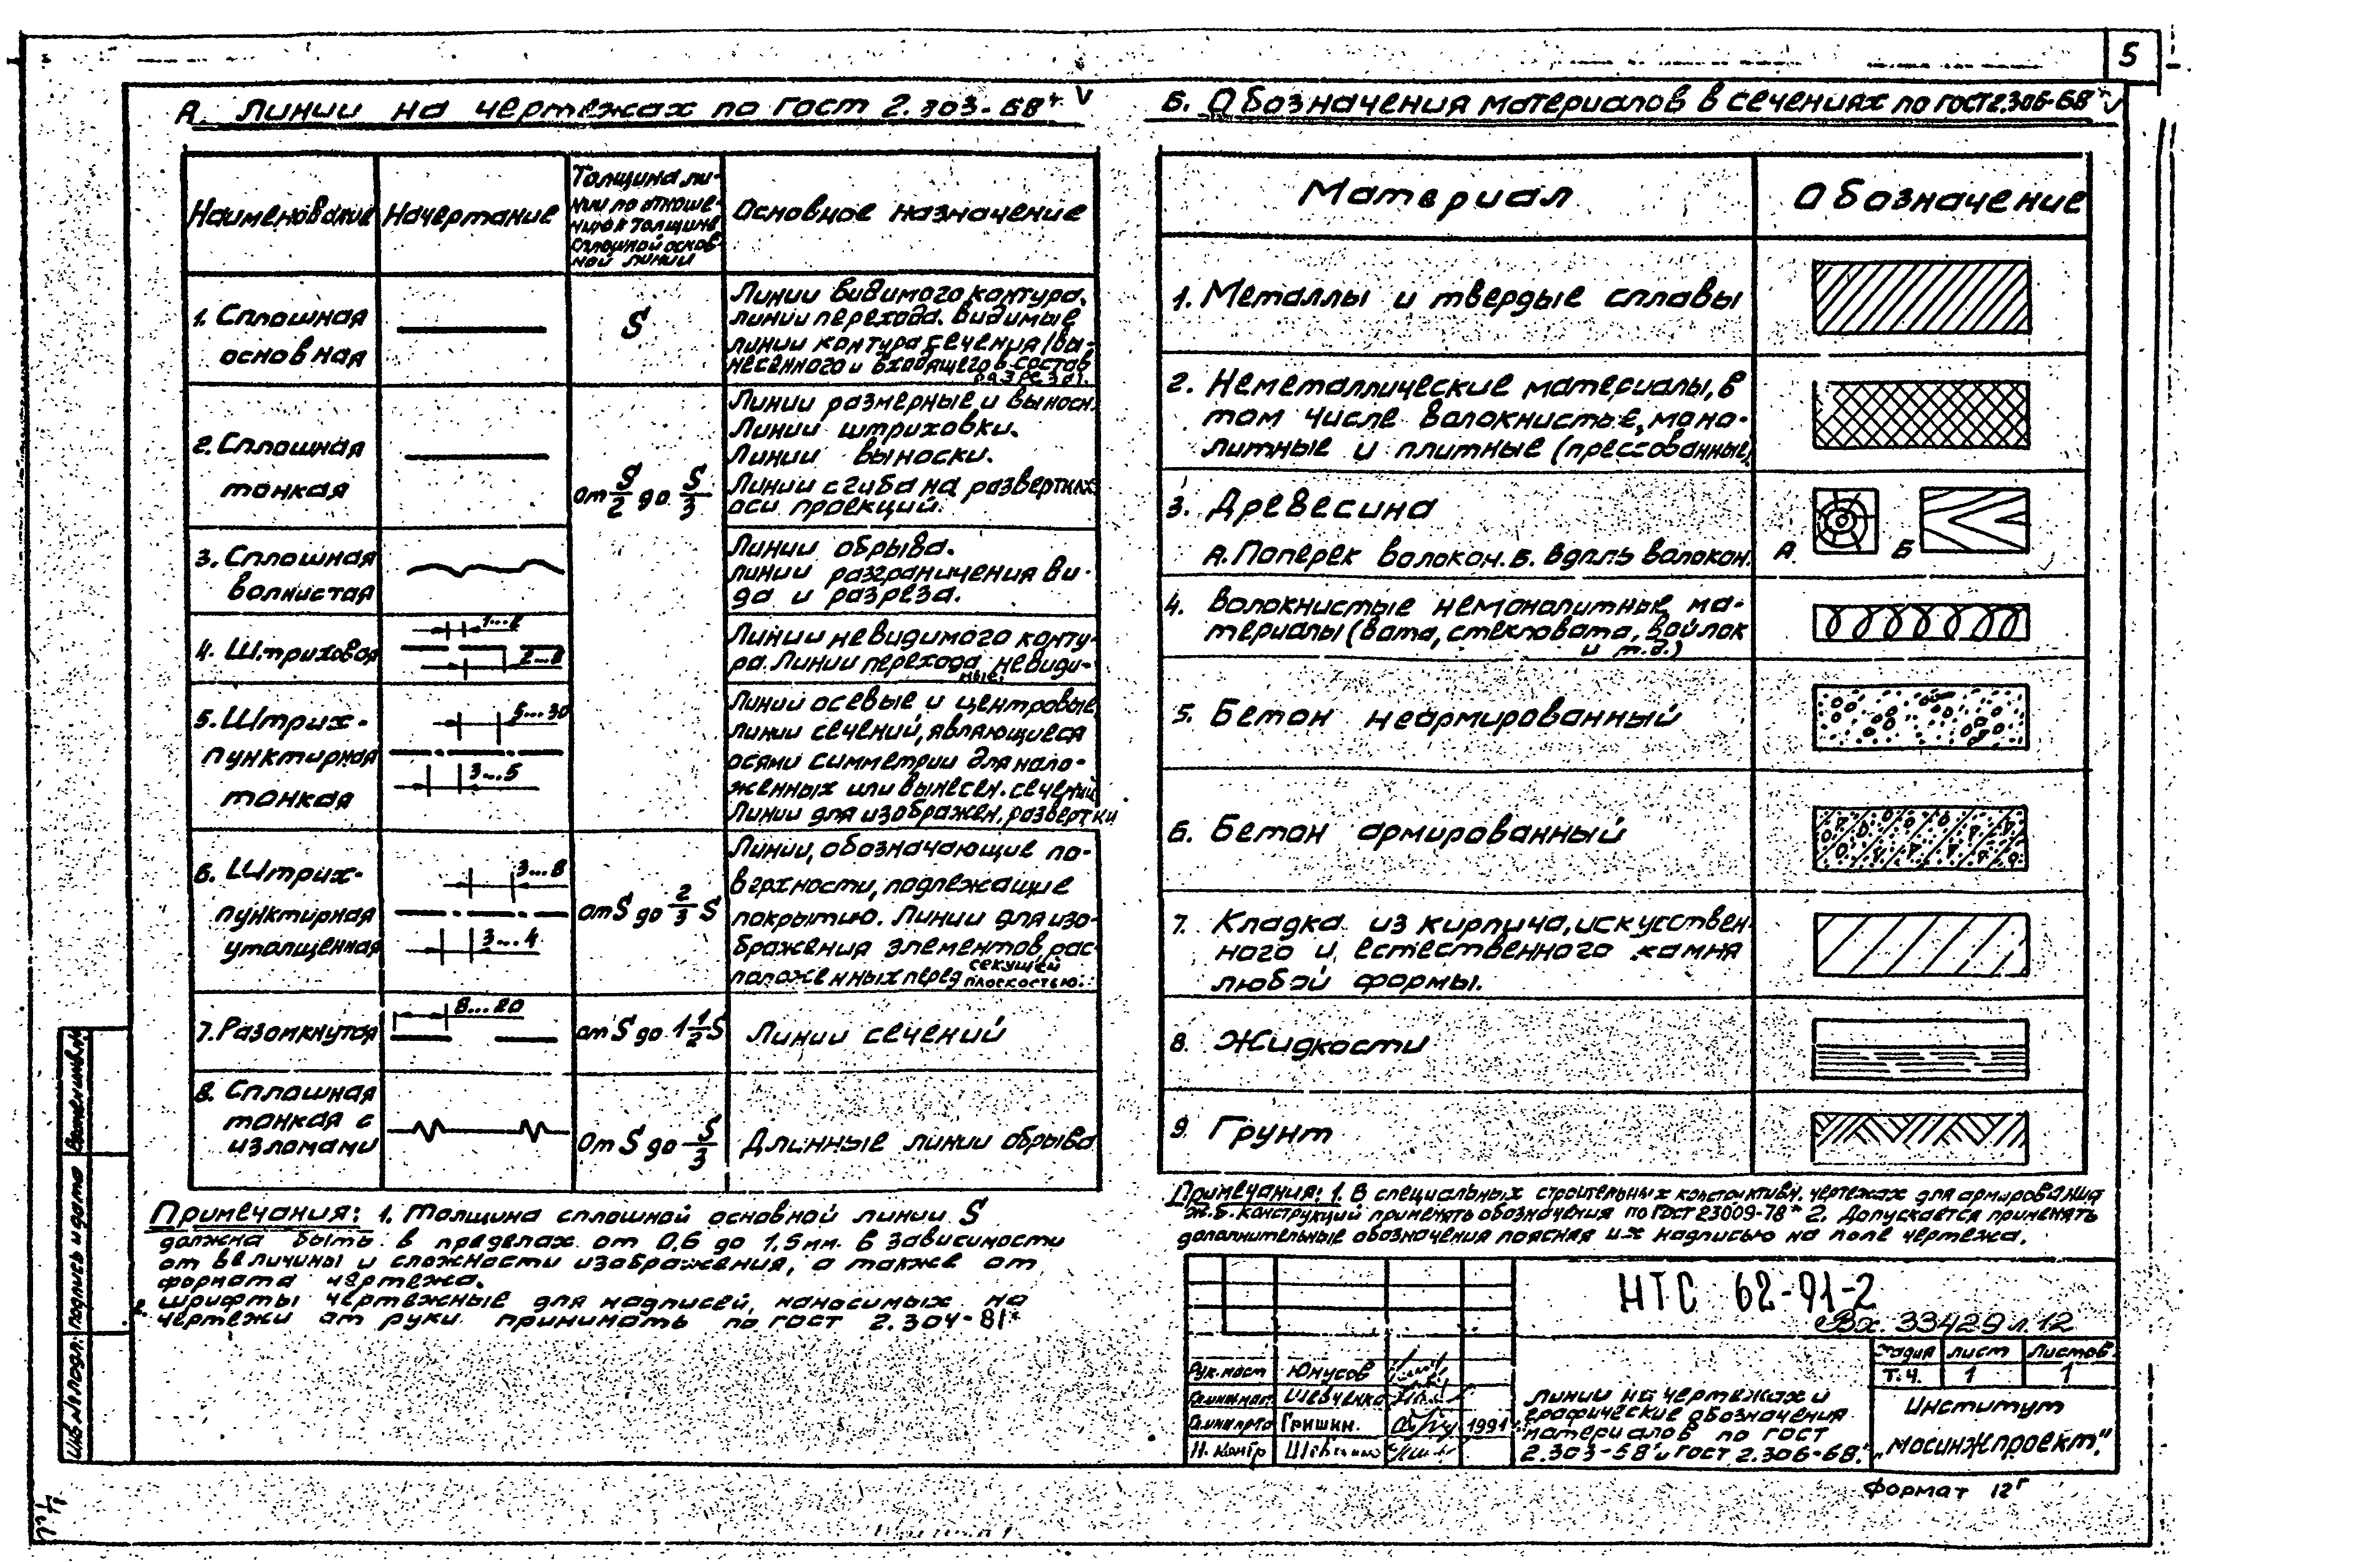 5
А. Линии на чертежах по ГОСТ 2.303-68*
Наименование
Начертание
Толщина ли-
нии по отноше-
нию к толщине
сплошной основ-
ной линии
Основное назначение
1. Сплошная
основная
S
Линии видимого контура.
линии перехода. видимые
линии контура сечения (вы-
несенного и входящего в состав
разреза).
2. Сплошная
тонкая
от S/2 до S/3
Линии размерные и выносн.
Линии штриховки.
Линии выноски.
Линии сгиба на развертках
оси проекций.
3. Сплошная
волнистая
Линии обрыва.
линии разграничения ви-
да и разреза.
4. Штриховая
1...2
2...8
Линии невидимого конту-
ра. Линии перехода невиди-
мые.
5. Штрих-
пунктирная
тонкая
5...30
3...5
Линии осевые и центровые
линии сечений, являющиеся
осями симметрии для нало-
женных или вынесен. сечений
Линии для изображен. развертки
6. Штрих-
пунктирная
утолщенная
3...8
3...4
от S до 2/3 S
Линии, обозначающие по-
верхности, подлежащие
покрытию. Линии для изо-
бражения элементов, рас-
положенных перед секущей
плоскостью.
7. Разомкнутая
8...20
от S до 1 1/2 S
Линии сечений
8. Сплошная
тонкая с
изломами
От S до S/3
Длинные линии обрыва
Примечания: 1. Толщина сплошной основной линии S
должна быть в пределах от 0,6 до 1,5 мм. в зависимости
от величины и сложности изображения, а также от
формата чертежа.
2. шрифты чертежные для надписей, наносимых на
чертежи от руки принимать по ГОСТ 2.304-81*
Б. Обозначения материалов в сечениях по ГОСТ 2.306-68*
Материал
Обозначение
1. Металлы и твердые сплавы
2. Неметаллические материалы, в
том числе волокнистые, моно-
литные и плитные (прессованные)
3. Древесина
А. Поперек волокон. Б. Вдоль волокон.
А
Б
4. Волокнистые немонолитные ма-
териалы (вата, стекловата, войлок
и т.д.)
5. Бетон неармированный
6. Бетон армированный
7. Кладка из кирпича, искусствен-
ного и естественного камня
любой формы.
8. Жидкости
9. Грунт
Примечания: 1. В специальных строительных конструктивн. чертежах для армирования
ж.б. конструкций применять обозначения по ГОСТ 23009-78* 2. Допускается применять
дополнительные обозначения поясняя их надписью на поле чертежа.
НТС 62-91-2
Вх. 33429 л. 12
Рук. маст Юнусов
Шевченко
Гришин. 1991
Н. контр
Линии на чертежах и
графические обозначения
материалов по ГОСТ
2.303-68* и ГОСТ 2.306-68*.
Стадия Лист Листов
Т.Ч. 1 1
Институт
„Мосинжпроект“
Формат 12Г
Взамен инв.№
Подпись и дата
Инв.№ подл.